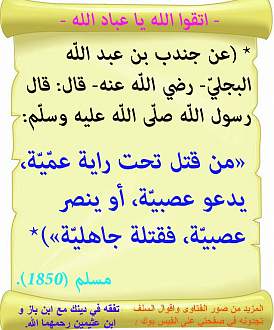 - اتقوا الله يا عباد الله -
* (عن جندب بن عبد اللّه
البجليّ- رضي اللّه عنه- قال: قال
رسول اللّه صلّى اللّه عليه وسلّم:
«من قتل تحت راية عمّيّة،
يدعو عصبيّة، أو ينصر
عصبيّة، فقتلة جاهليّة»)*
مسلم (1850).
المزيد من صور الفتاوى واقوال السلف
تجدونه في صفحتي على الفيس بوك :
تفقه في دينك مع ابن باز و
ابن عثيمين رحمهما الله.